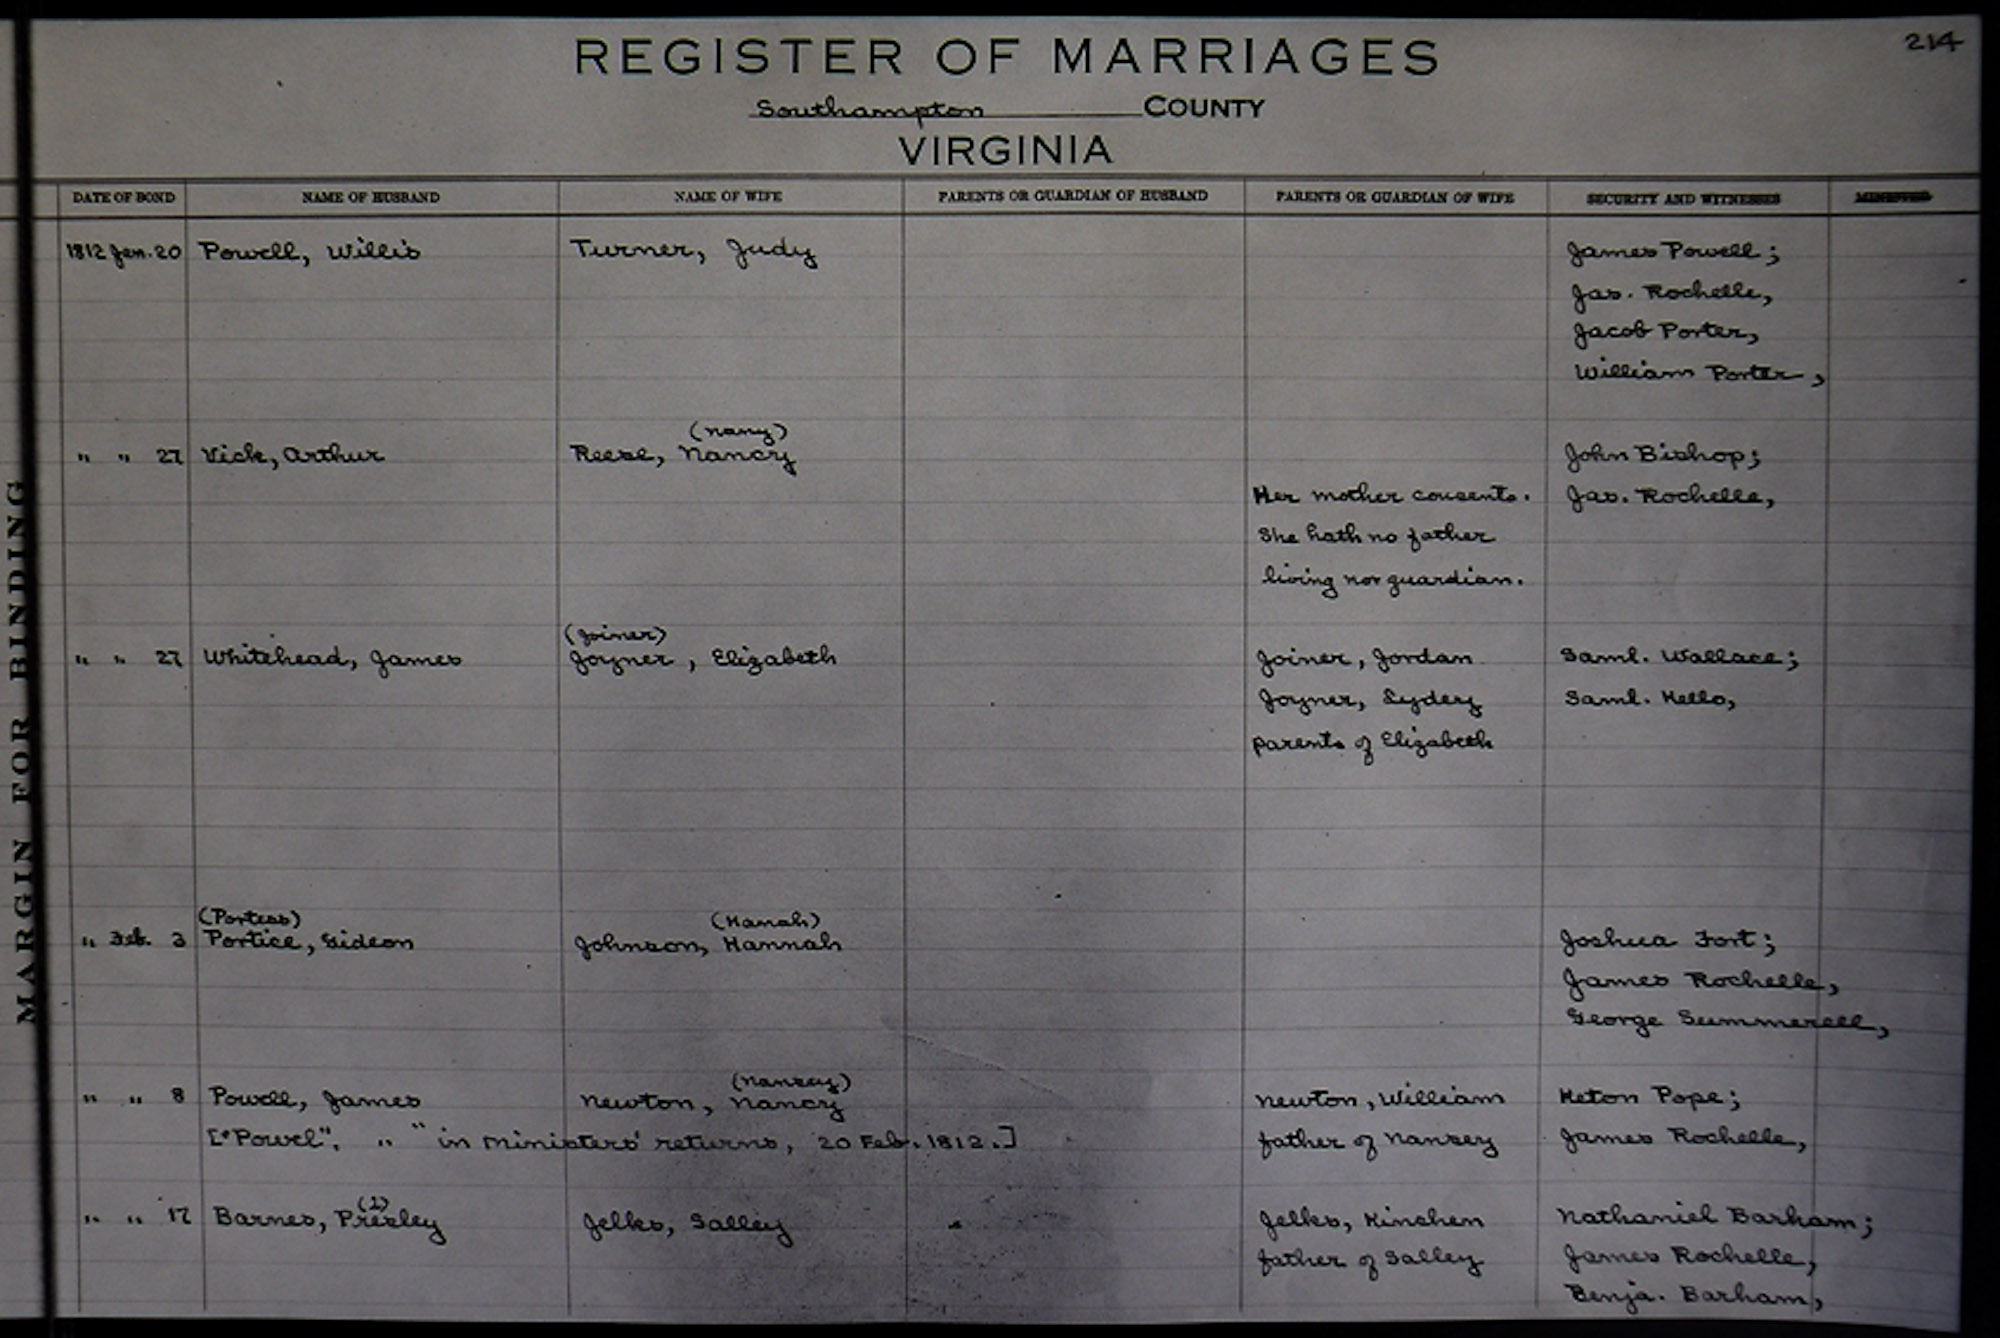 214
REGISTER OF MARRIAGES
Southampton COUNTY
VIRGINIA
MARGIN FOR BINDING
DATE OF BOND NAME OF HUSBAND NAME OF WIFE PARENTS OR GUARDIAN OF HUSBAND PARENTS OR GUARDIAN OF WIFE SECURITY AND WITNESSES MINISTER
1812 Jan. 20 Powell, Willis Turner, Judy James Powell;
Jas. Rochelle,
Jacob Porter,
William Porter,
(nany)
" " 27 Vick, Arthur Reese, Nancy John Bishop;
Her mother consents. Jas. Rochelle,
She hath no father
living nor guardian.
(Joiner)
" " 27 Whitehead, James Joyner, Elizabeth Joiner, Jordan Saml. Wallace;
Joyner, Lydey Saml. Kello,
parents of Elizabeth
(Portess) (Hanah)
" Feb. 3 Portice, Gideon Johnson, Hannah Joshua Fort;
James Rochelle,
George Summerell,
(Nansey)
" " 8 Powell, James Newton, Nancy Newton, William Heton Pope;
["Powel", " " in ministers' returns, 20 Feb. 1812.] father of Nansey James Rochelle,
" " 17 Barnes, Presley Jelks, Salley Jelks, Kinchen Nathaniel Barham;
father of Salley James Rochelle,
Benja. Barham,